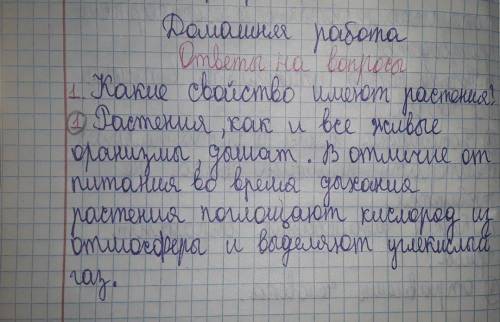 Домашняя работа
Ответы на вопросы
1. Какие свойство имеют растения?
1 Растения, как и все живые
оранизмы, дышат. В отличие от
питания во время дыхания
растения поглощают кислород из
отмосферы и выделяют углекислый
газ.